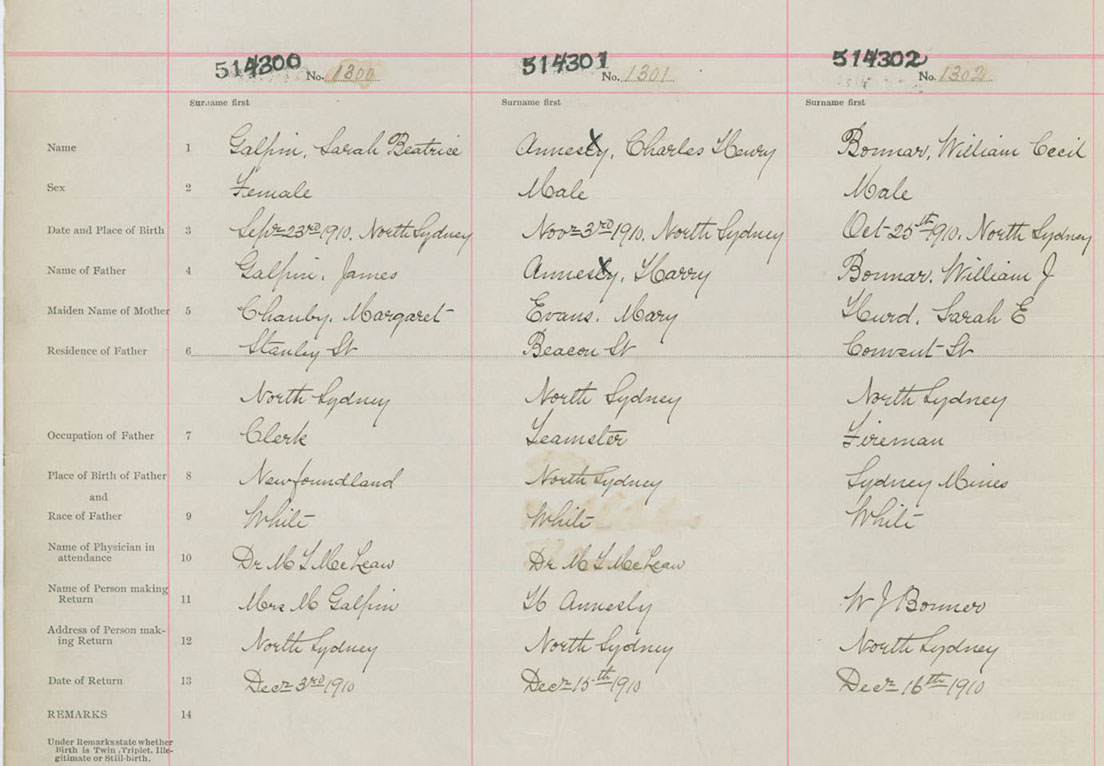 514300 No. 1300 514301 No. 1301 514302 No. 1302
Surname first Surname first Surname first
Name 1 Galpin, Sarah Beatrice Annesly, Charles Henry Bonnar, William Cecil
Sex 2 Female Male Male
Date and Place of Birth 3 Sepr 23rd 1910, North Sydney Novr 3rd 1910, North Sydney Oct 25th 1910, North Sydney
Name of Father 4 Galpin, James Annesly, Harry Bonnar, William J
Maiden Name of Mother 5 Margaret Evans, Mary Hurd, Sarah E
Residence of Father 6 Stanley St Beacon St Convent St
North Sydney North Sydney North Sydney
Occupation of Father 7 Clerk Teamster Fireman
Place of Birth of Father 8 Newfoundland North Sydney Sydney Mines
and
Race of Father 9 White White White
Name of Physician in
attendance 10 Dr M L McLean Dr M L McLean
Name of Person making
Return 11 Mrs M Galpin H Annesly W J Bonner
Address of Person mak-
ing Return 12 North Sydney North Sydney North Sydney
Date of Return 13 Decr 3rd 1910 Decr 15th 1910 Decr 16th 1910
REMARKS 14
Under Remarks state whether
Birth is Twin, Triplet, Ille-
gitimate or Still-birth.